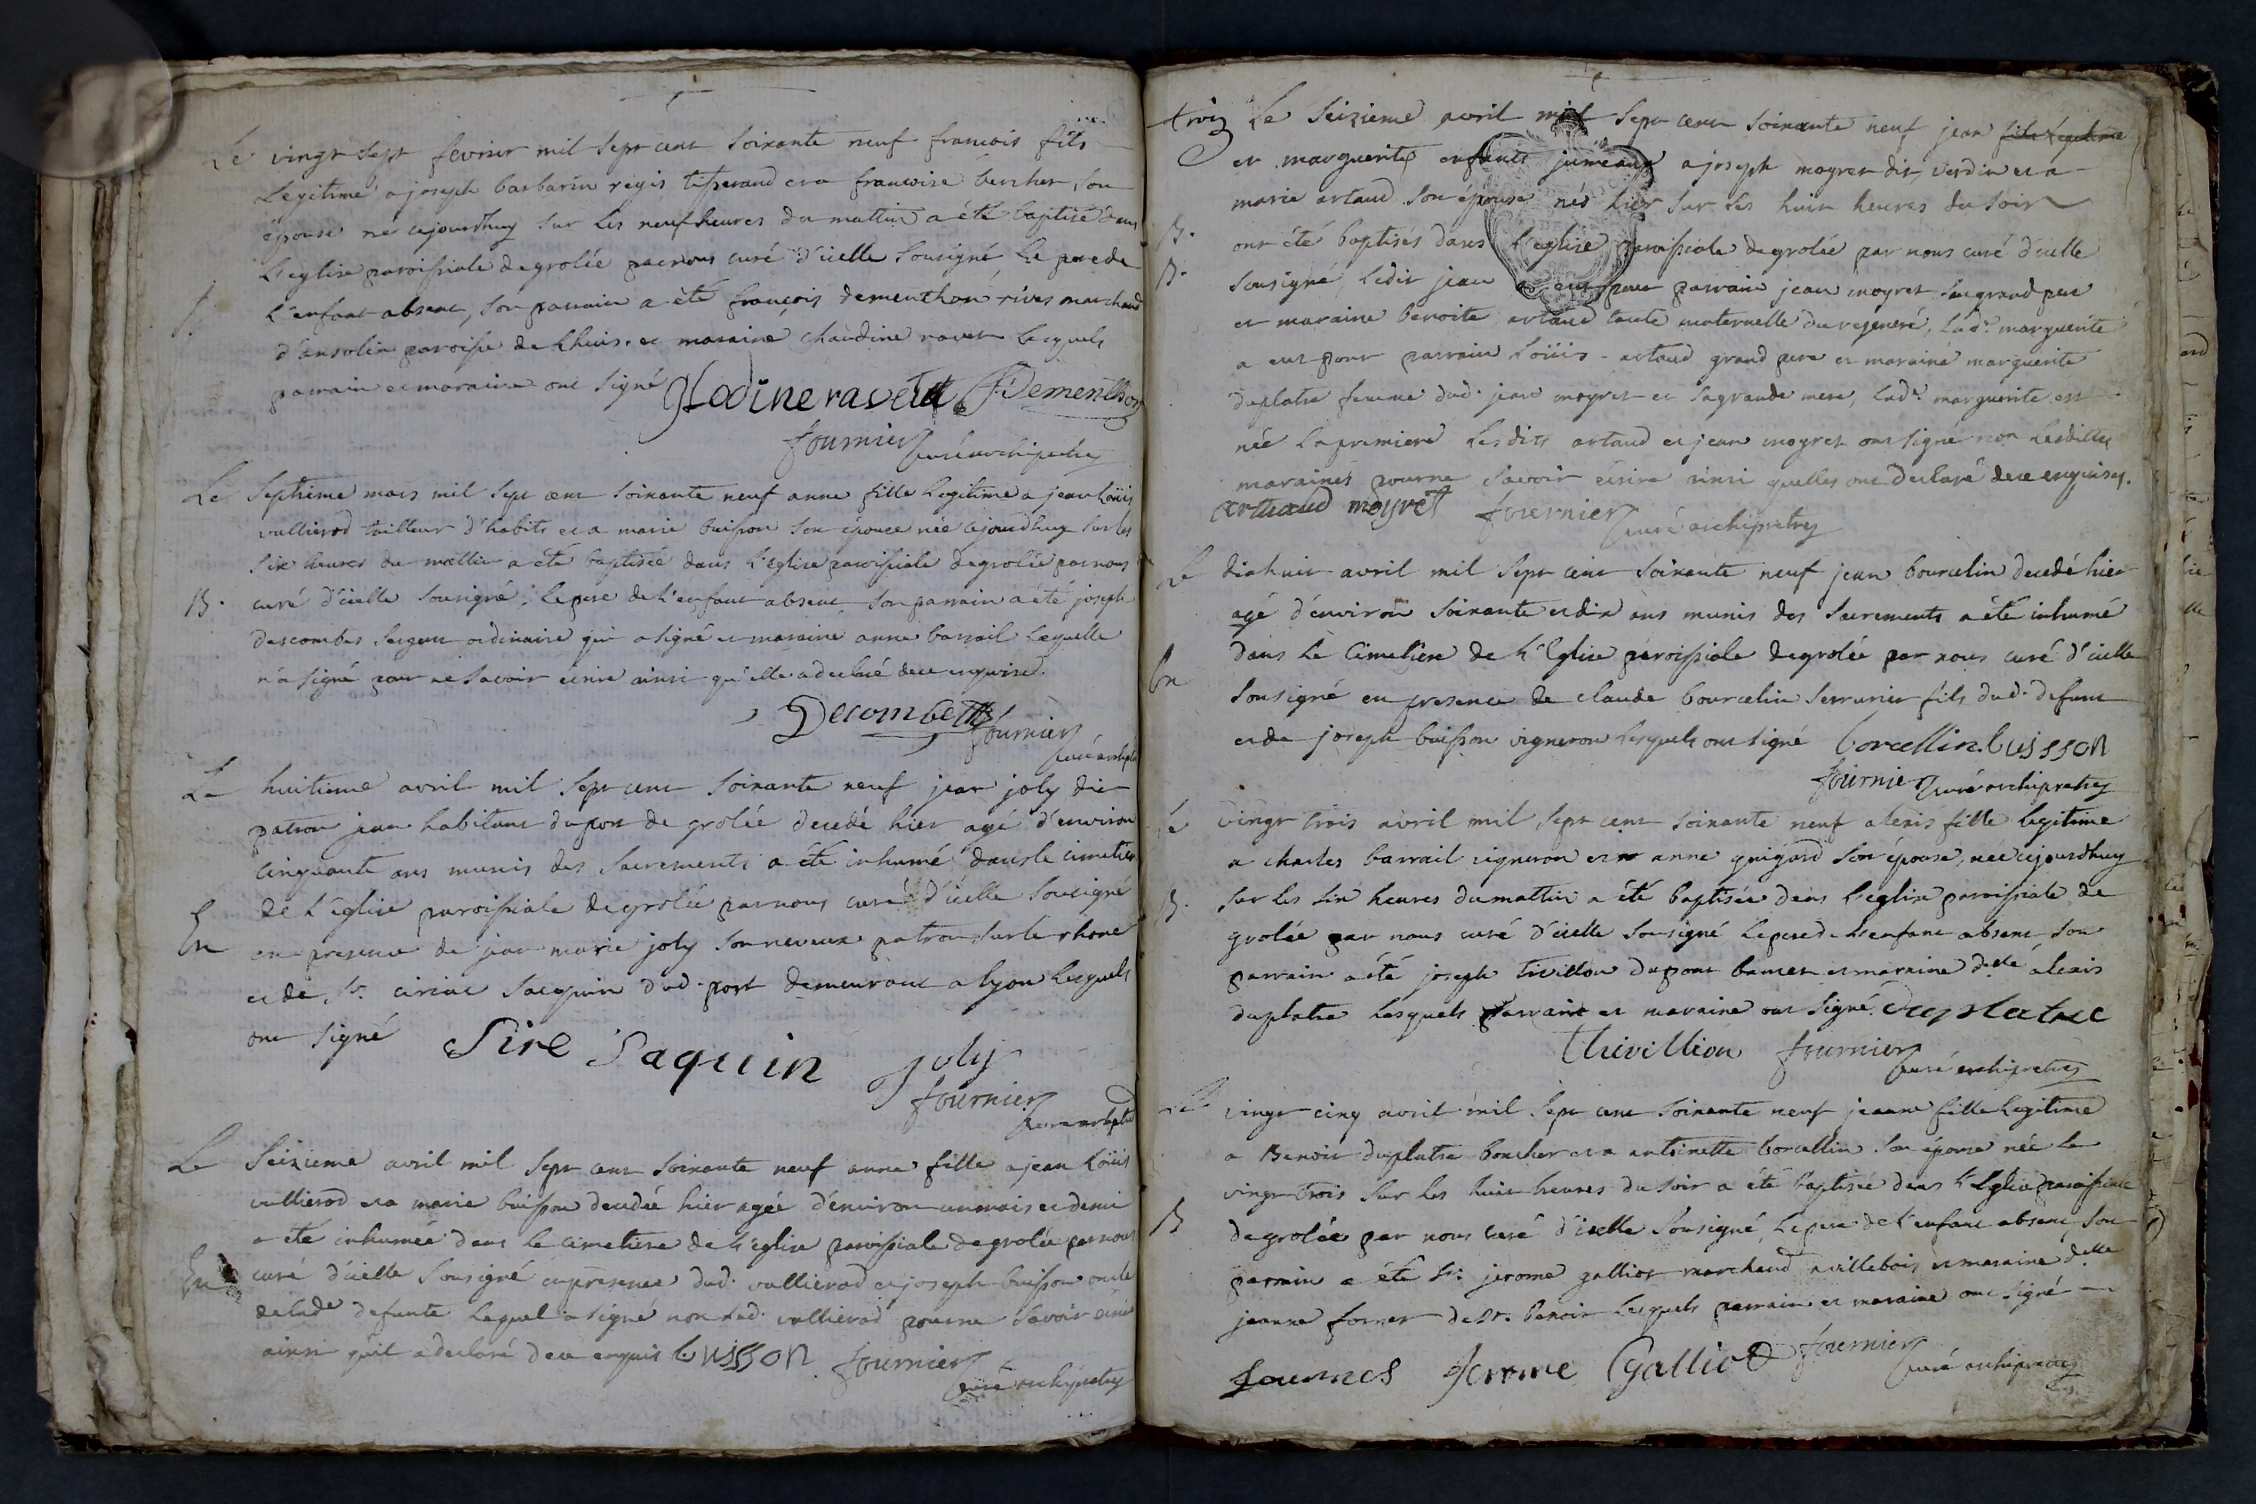 Le vingt sept fevrier mil sept cent soixante neuf francois fils
Legitime a joseph barbarin regis tisserand et a francoise bercher son
épouse né cejourdhuy sur les neuf heures du mattin a été baptisé dans
L'eglise paroissiale de grolée par nous curé d'icelle sousigné, Le pere de
L'enfant absent, son parrain a été françois dementhon rives marchand
d'ansolin paroisse de Lhuis. et maraine claudine ravet Lesquels
parrain et maraine ont signé Glodine ravetit F Dementhon
fournier curé archipretre
Le septieme mars mil sept cent soixante neuf anne fille Legitime a jean Loüis
vullierod tailleur d'habits et a marie buisson son épouce née cejourdhuy sur les
six heures du mattin a été baptisée dans L'eglise paroissiale de grolée par nous
B. curé d'icelle sousigné; Le pere de L'enfant absent son parrain a été joseph
descombes sergent ordinaire qui a signé et maraine anne barrail Laquelle
n'a signé pour ne savoir ecrire ainsi qu'elle a declaré de ce enquise.
Decombes fournier
curé archiptre
Le huitieme avril mil sept cent soixante neuf jean joly dit
patron jean habitant du port de grolée decedé hier agé d'environ
cinquante ans munis des sacrements a été inhumé dans le cimetiere
de L'eglise paroissiale de grolée par nous curé d'icelle sousigné
En en presence de jean marie joly son neveux patron sur le rhone
et de Sr. ciriac Jacquin dud. port demeurant a lyon Lesquels
ont signé Sire Jaquin joly
fournier
curé archiptre
Le seizieme avril mil sept cent soixante neuf anne fille a jean Loüis
vullierod et a marie buisson decedée hier agée d'environ un mois et demi
a été inhumée dans le cimetiere de L'eglise paroissiale de grolée par nous
En curé d'icelle sousigné en presence dud. vullierod et joseph buisson oncle
de lade defunte Laquel a signé non led. vullierod pour ne savoir ecrire
ainsi quil a declaré de ce enquis buisson fournier
curé archipretre
trois Le seizieme avril mil sept cent soixante neuf jean fils Legitime
et marguerite enfants jumeaux a joseph moyret dit verdin et a
marie artaud son épouse nés hier sur les huit heures du soir
B. ont été baptisés dans L'eglise paroissiale de grolée par nous curé d'icelle
B. sousigné, Ledit jean a eut pour parrain jean moyret son grand pere
et maraine benoite artaud tante maternelle du regeneré, Lade. marguerite
a eut pour parrain Loüis artaud grand pere et maraine marguerite
duplatre femme dud. jean moyret et sa grande mere, Lade. marguerite est
née La premiere Lesdits artaud et jean moyret ont signé non Lesdittes
maraines pour ne savoir écrire ainsi quelles ont declaré de ce enquises.
artuaud moyret fournier curé archipretre
Le dixhuit avril mil sept cent soixante neuf jean bourcelin decedé hier
agé d'environ soixante et dix ans munis des sacrements a été inhumé
dans Le cimetiere de L'Eglise paroissiale de grolée par nous curé d'icelle
En sousigné en presence de claude bourcelin serrurier fils dud. defunt
et de joseph buisson vigneron Lesquels ont signé borcellin buisson
fournier curé archipretre
Le vingt trois avril mil sept cent soixante neuf alexis fille Legitime
a charles barrail vigneron et a anne guigard son épouse, née cejourdhuy
sur les six heures du mattin a été baptisée dans L'eglise paroissiale de
B. grolée par nous curé d'icelle sousigné Le pere de L'enfant absent, son
parrain a été joseph tivillon et maraine delle alexis
duplatre Lesquels parrain et maraine ont signé. duplatre
thivillion fournier
curé archipretre
Le vingt cinq avril mil sept cent soixante neuf jeanne fille Legitime
a Benoit duplatre boucher et a antoinette borcellin son épouse née le
vingt trois sur les huit heures du soir a été baptisée dans L'Eglise paroissiale
B de grolée par nous curé d'icelle sousigné, Le pere de L'enfant absent, son
parrain a été Sr. jerome galliot marchand a villebois et maraine delle
jeanne fornet de St. benoit Lesquels parrain et maraine ont signé
Jerome Galliot fournier curé archipretre